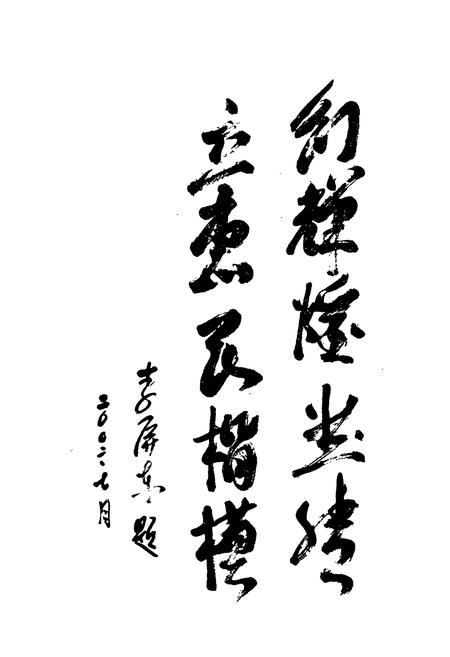 创辉煌业绩
立惠民楷模
李屏东题
二〇〇二、七月